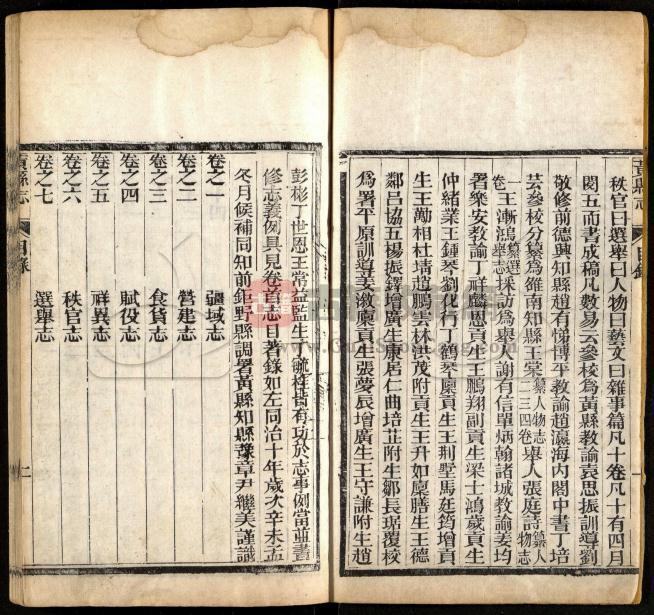 黃縣志
目錄
一
秩官曰選舉曰人物曰藝文曰雜事篇凡十卷凡十有四月
閱五而書成稿凡數易云參校為黃縣教諭袁思振訓導劉
敬修前德興知縣趙有悌博平教諭趙瀛海内閣中書丁培
芸參校分纂為雒南知縣王棠纂人物志二三四卷舉人張庭詩纂人物志
一卷王漸鴻纂選舉志採訪為舉人謝有信單炳翰諸城教諭姜均
署樂安教諭丁祥麟恩貢生王鵬翔副貢生梁士鴻歲貢生
仲緒業王鍾琴劉化行丁鶴琴廩貢生王荆墅馬廷筠增貢
生王勱相杜堉趙鵬雲林洪茂附貢生王升如廩膳生王德
鄰呂協五楊振鐸增廣生康居仁曲培芷附生鄒長琚覆校
為署平原訓導姜漵廩貢生張夢辰增廣生王守謙附生趙
彭彬丁世恩王常益監生丁毓桂皆有功於志事例當並書
修志義例具見卷首志目著錄如左同治十年歲次辛未孟
冬月候補同知前鉅野縣調署黃縣知縣豫章尹繼美謹識
卷之一 疆域志
卷之二 營建志
卷之三 食貨志
卷之四 賦役志
卷之五 祥異志
卷之六 秩官志
卷之七 選舉志
黃縣志
目錄
二